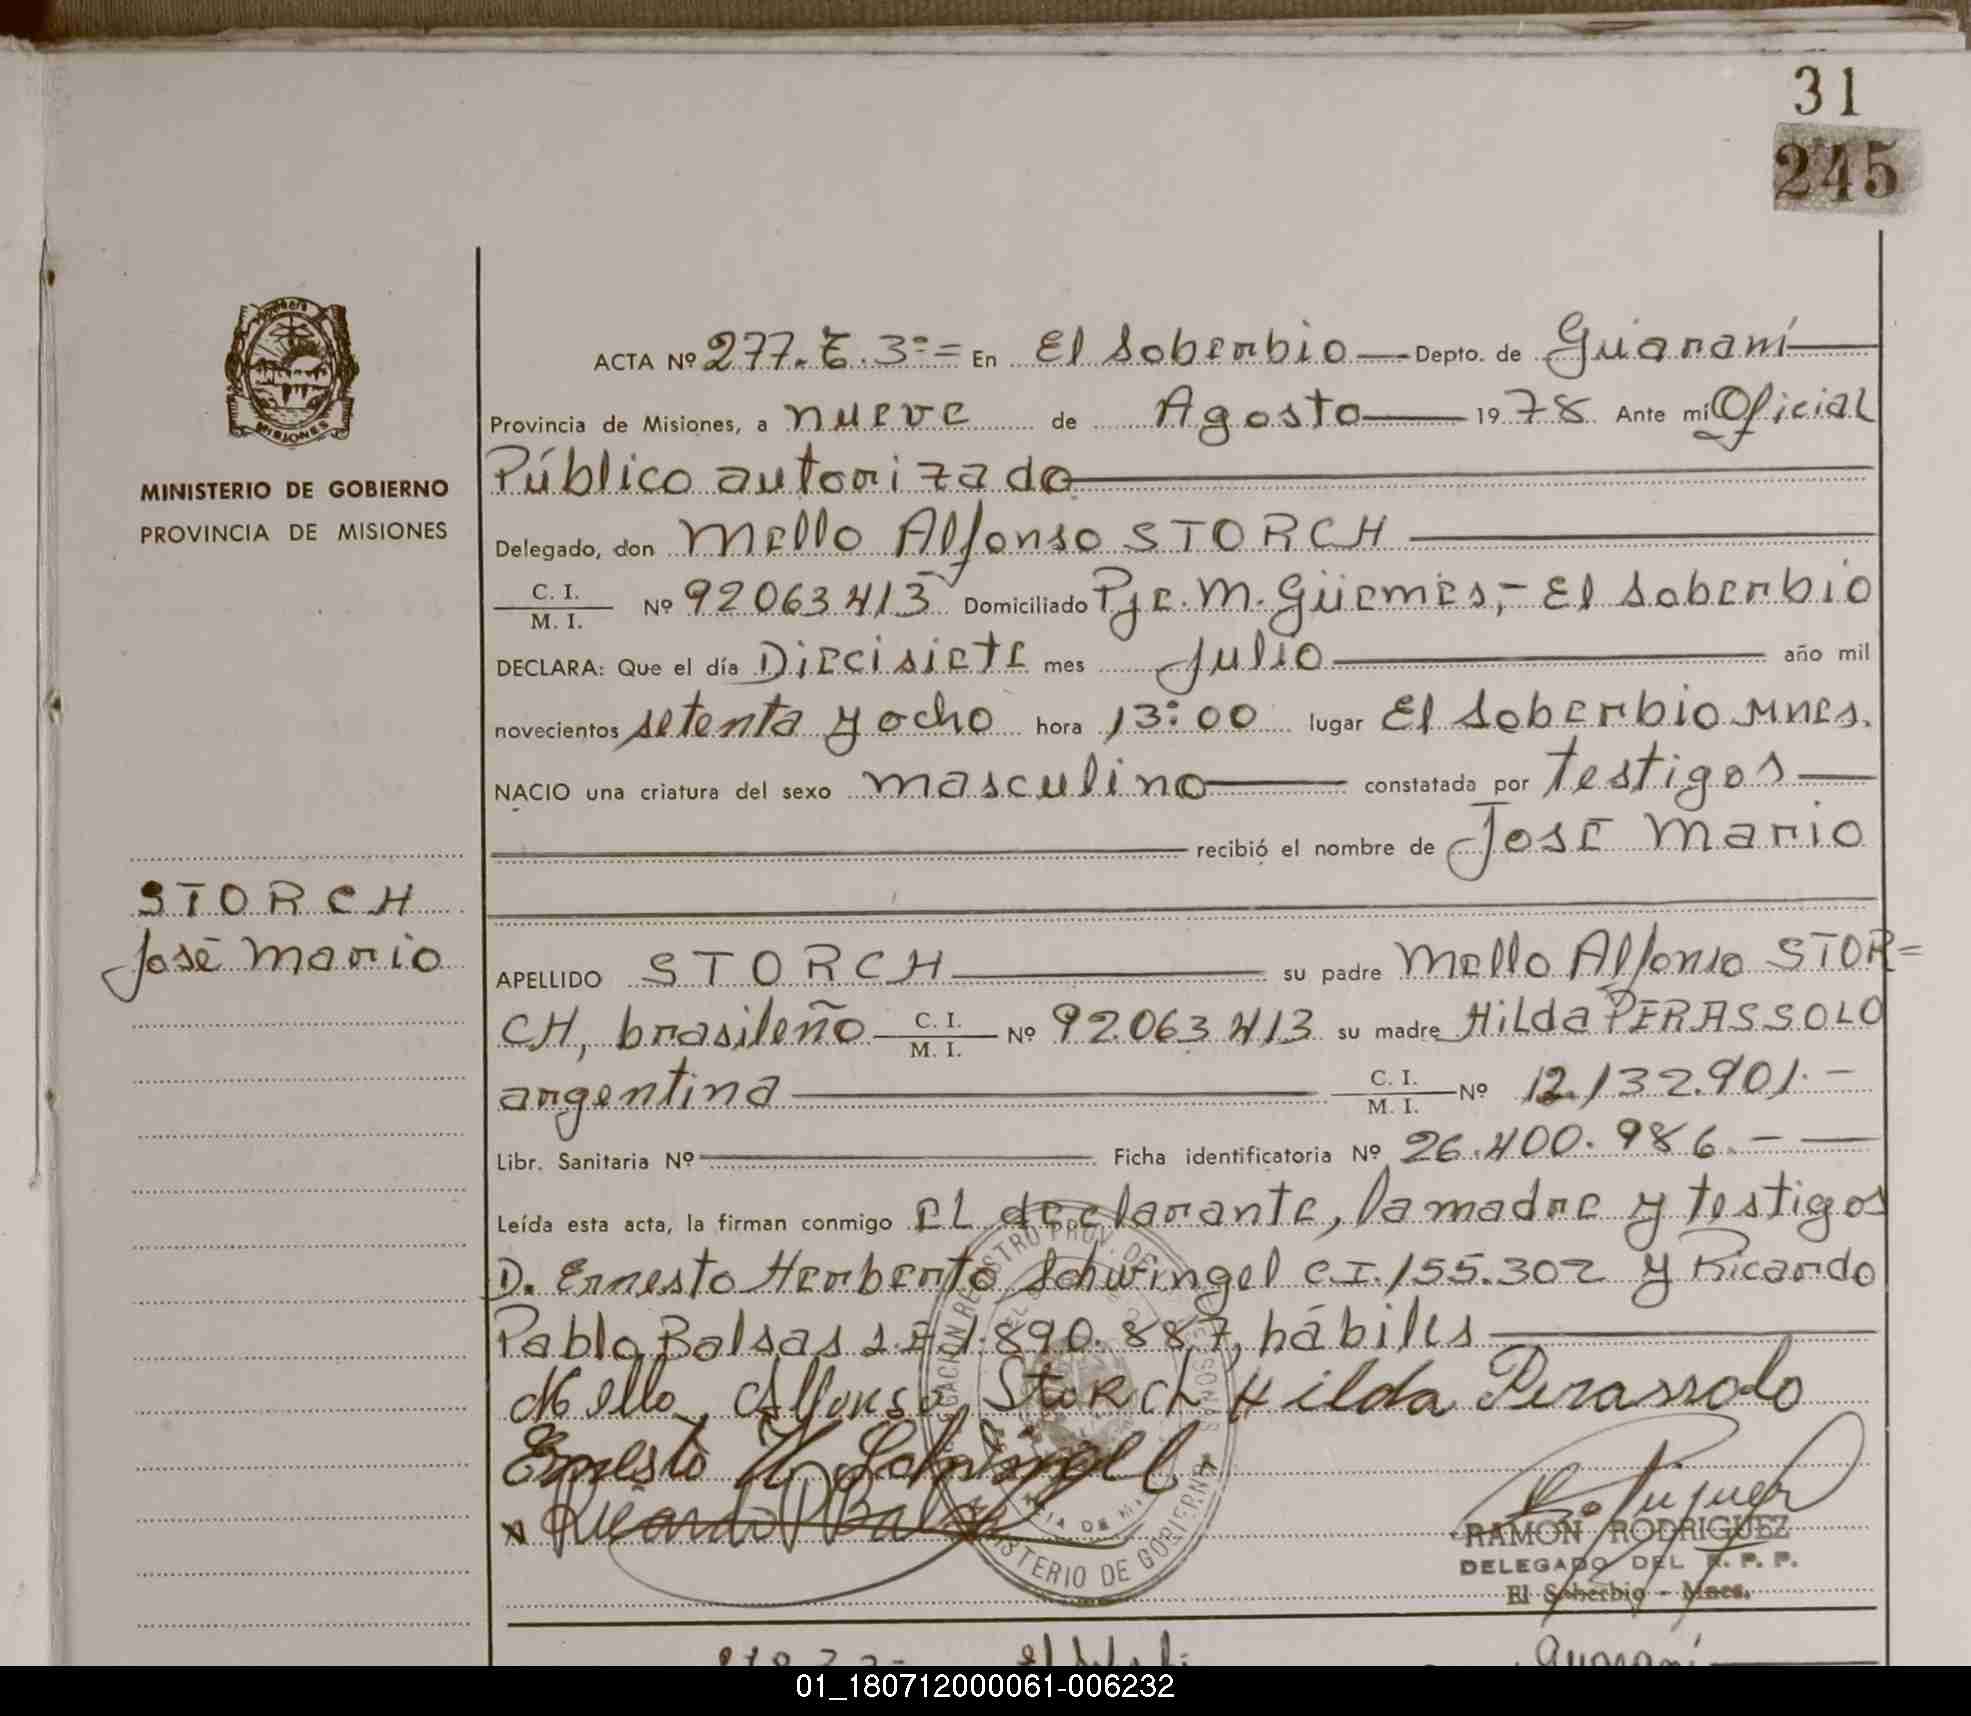 31
245
MISIONES
MINISTERIO DE GOBIERNO
PROVINCIA DE MISIONES
STORCH
José Mario
ACTA Nº 277. T. 3º= En El Soberbio Depto. de Guaraní
Provincia de Misiones, a nueve de Agosto 1978 Ante mí Oficial
Público autorizado
Delegado, don Mello Alfonso STORCH
C. I.
M. I. Nº 92063413 Domiciliado Pje. M. Güemes,- El Soberbio
DECLARA: Que el día Diecisiete mes Julio año mil
novecientos setenta y ocho hora 13:00 lugar El Soberbio Mnes.
NACIO una criatura del sexo masculino constatada por testigos
recibió el nombre de José Mario
APELLIDO STORCH su padre Mello Alfonso STOR=
CH, brasileño C. I. M. I. Nº 92.063.413 su madre Hilda PERASSOLO
argentina C. I. M. I. Nº 12.132.901.-
Libr. Sanitaria Nº Ficha identificatoria Nº 26.400.986.-
Leída esta acta, la firman conmigo El declarante, la madre y testigos
D. Ernesto Herberto Schwingel C.I. 155.302 y Ricardo
Pablo Balsas L.E 1.890.887, hábiles
Mello Alfonso Storch Hilda Perassolo
Ernesto H Schwingel
Ricardo P Balsas
MINISTERIO DE GOBIERNO
RAMON RODRIGUEZ
DELEGADO DEL R. P. P.
El Soberbio - Mnes.
01_180712000061-006232